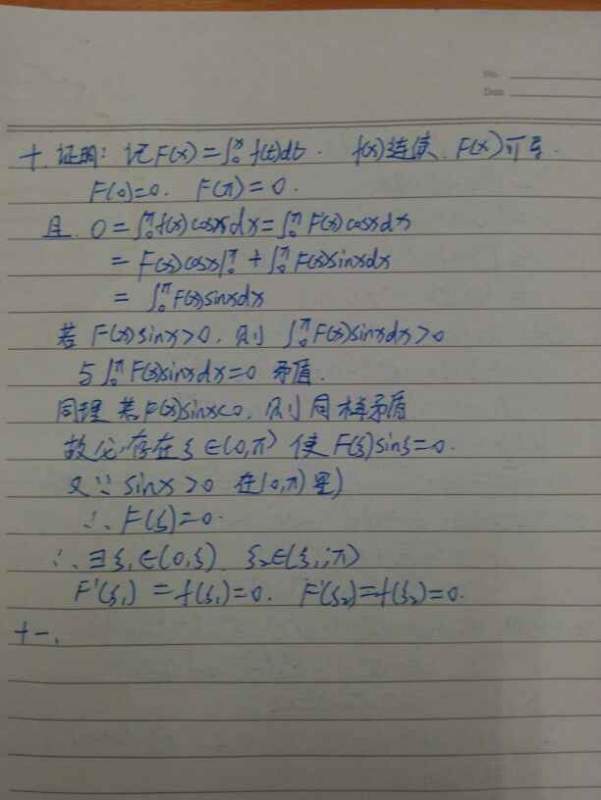 No.
Date
十. 证明: 记F(x)=∫₀ˣf(t)dt. f(x)连续, F(x)可导.
F(0)=0. F(π)=0.
且. 0=∫₀^π f(x)cosxdx=∫₀^π F(x)cosxdx
= F(x)cosx|₀^π + ∫₀^π F(x)sinxdx
= ∫₀^π F(x)sinxdx
若 F(x)sinx>0, 则 ∫₀^π F(x)sinxdx>0
与∫₀^π F(x)sinxdx=0 矛盾.
同理 若F(x)sinx<0, 则同样矛盾
故必存在ξ∈(0,π) 使 F(ξ)sinξ=0.
又∵ sinx>0 在(0,π)里
∴ F(ξ)=0.
∴ ∃ξ₁∈(0,ξ) ξ₂∈(ξ,π)
F'(ξ₁)=f(ξ₁)=0. F'(ξ₂)=f(ξ₂)=0.
十一.